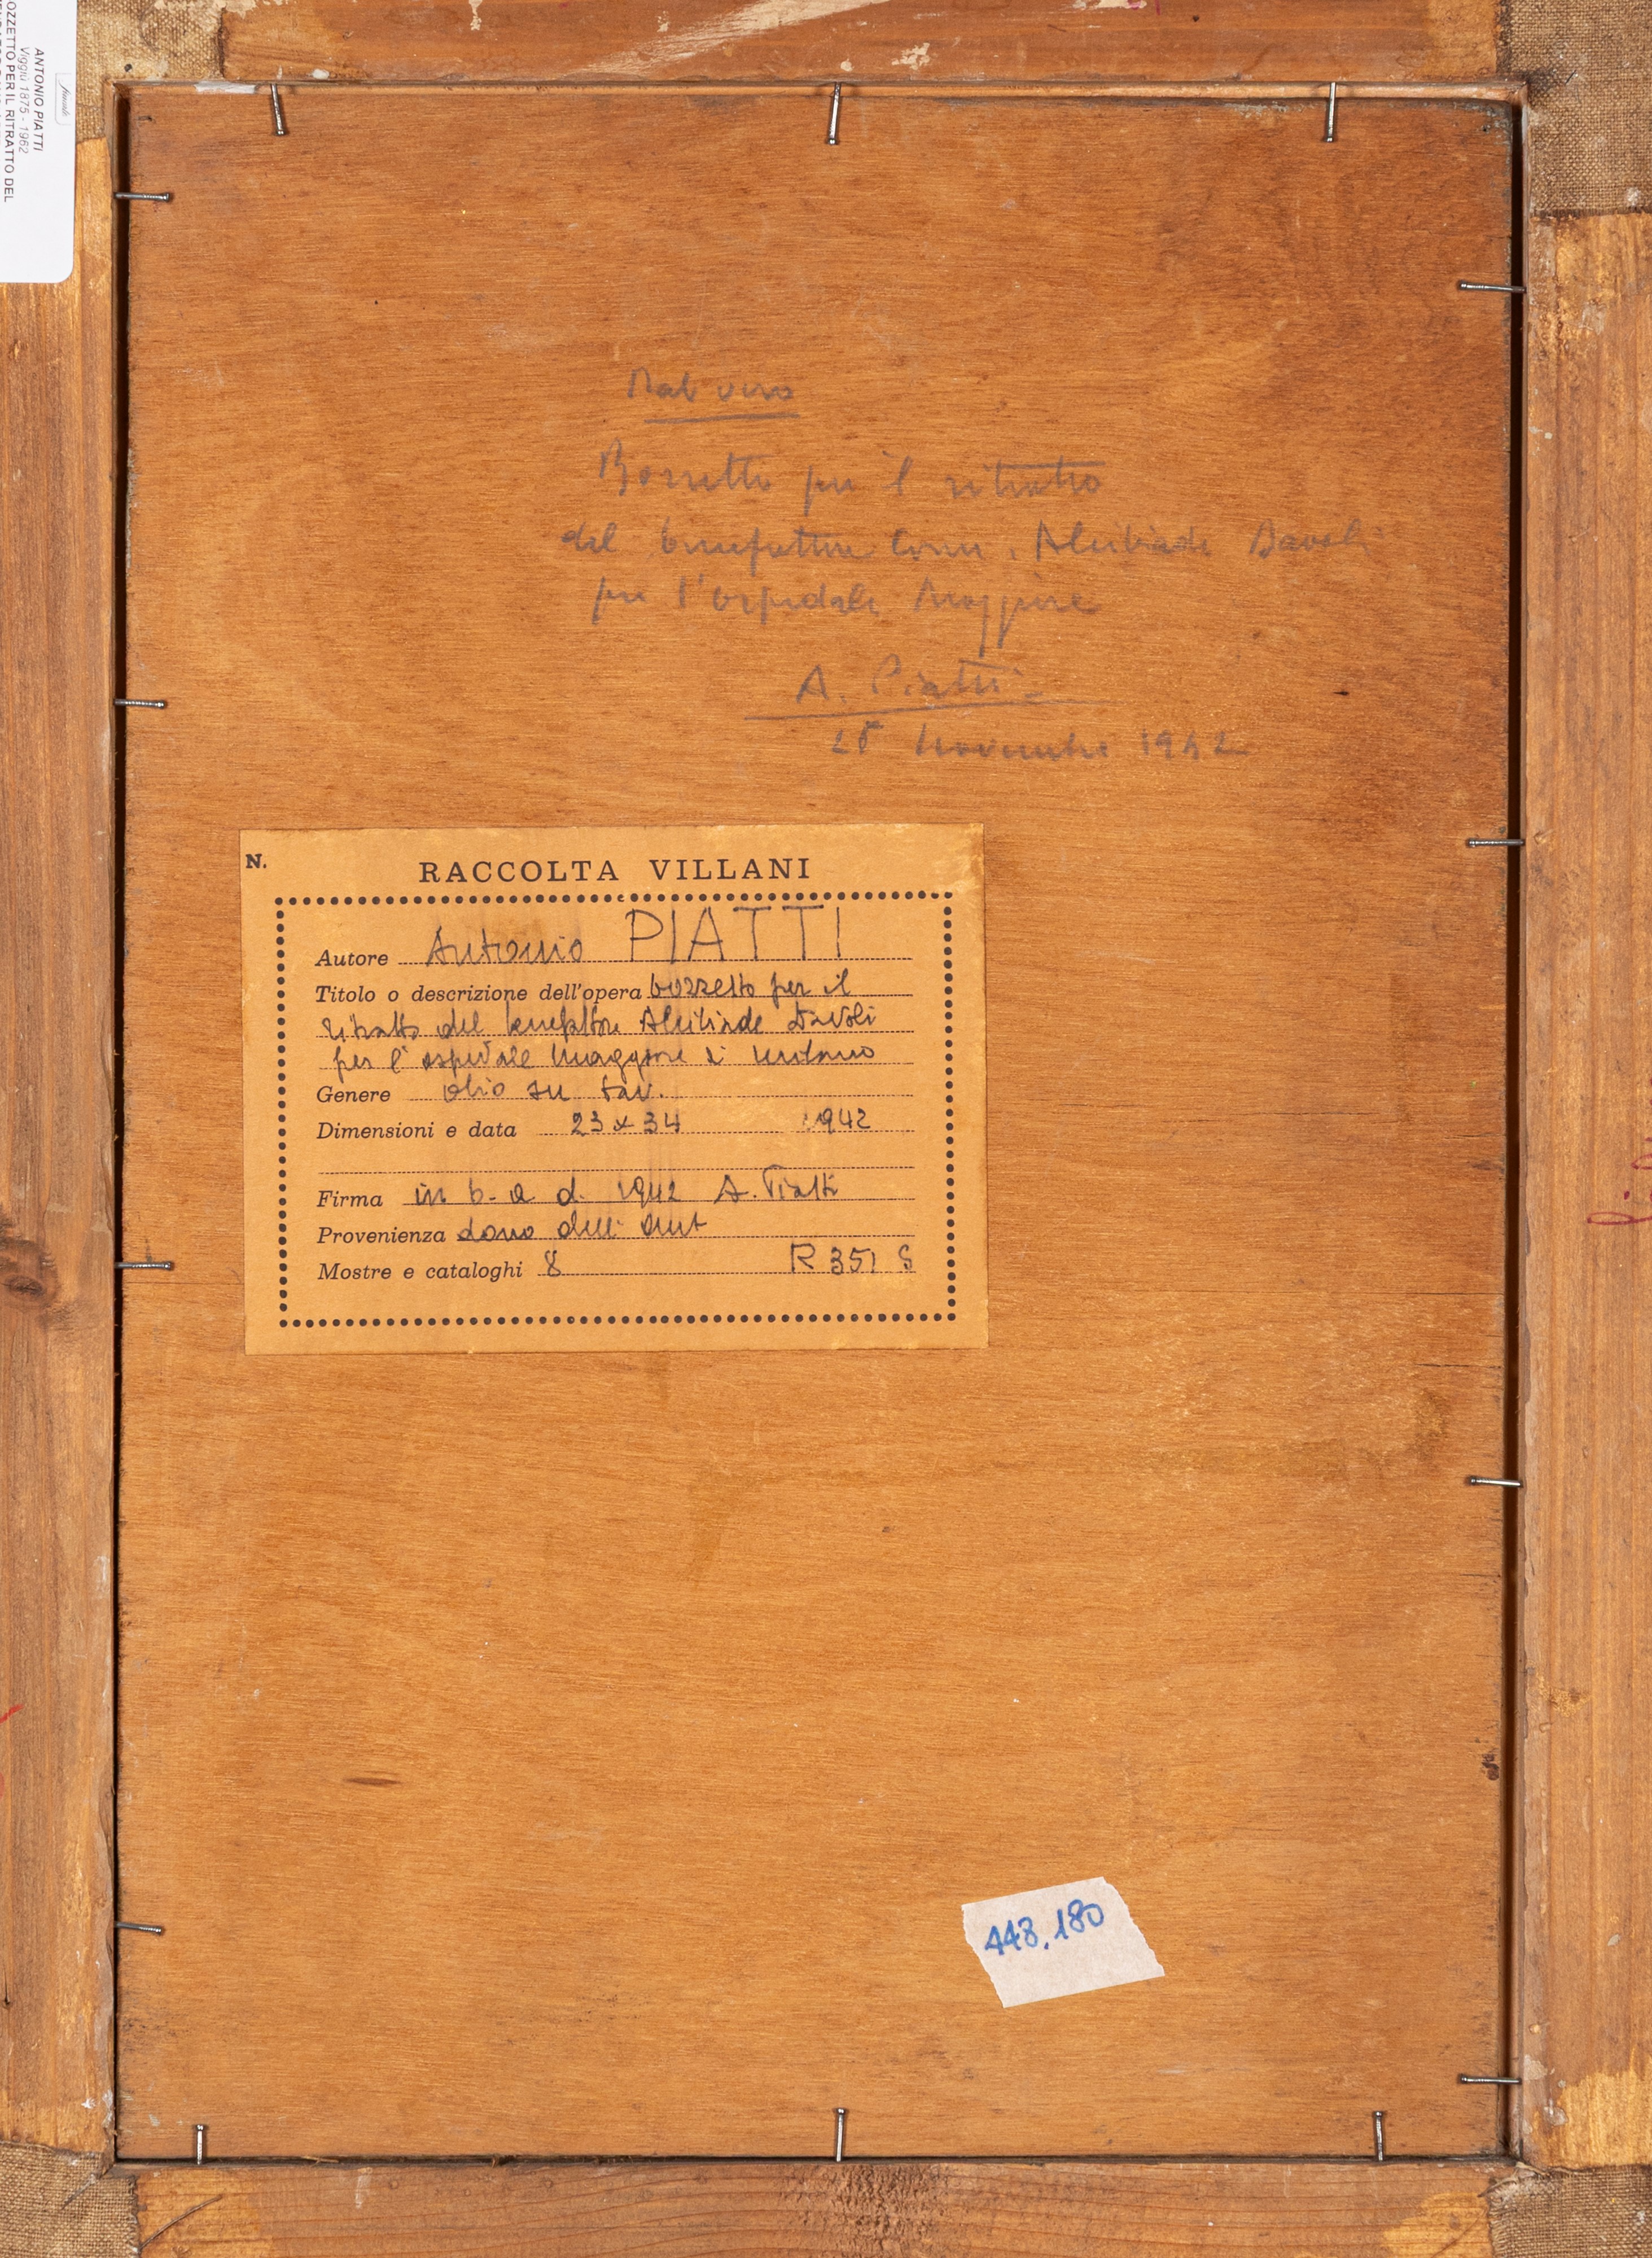 ANTONIO PIATTI
Viggiù 1875 - 1962
OZZETTO PER IL RITRATTO DEL
Dal vero
Bozzetto per il ritratto
del benefattore Comm. Alcibiade Davoli
per l'Ospedale Maggiore
A. Piatti
Novembre 1942
N.
RACCOLTA VILLANI
Autore Antonio PIATTI
Titolo o descrizione dell'opera bozzetto per il
ritratto del benefattore Alcibiade Davoli
per l'ospedale Maggiore di Milano
Genere olio su tav.
Dimensioni e data 23 x 34 1942
Firma in b. a d. 1942 A. Piatti
Provenienza dono dell'aut
Mostre e cataloghi 8 R 351 S
448.180